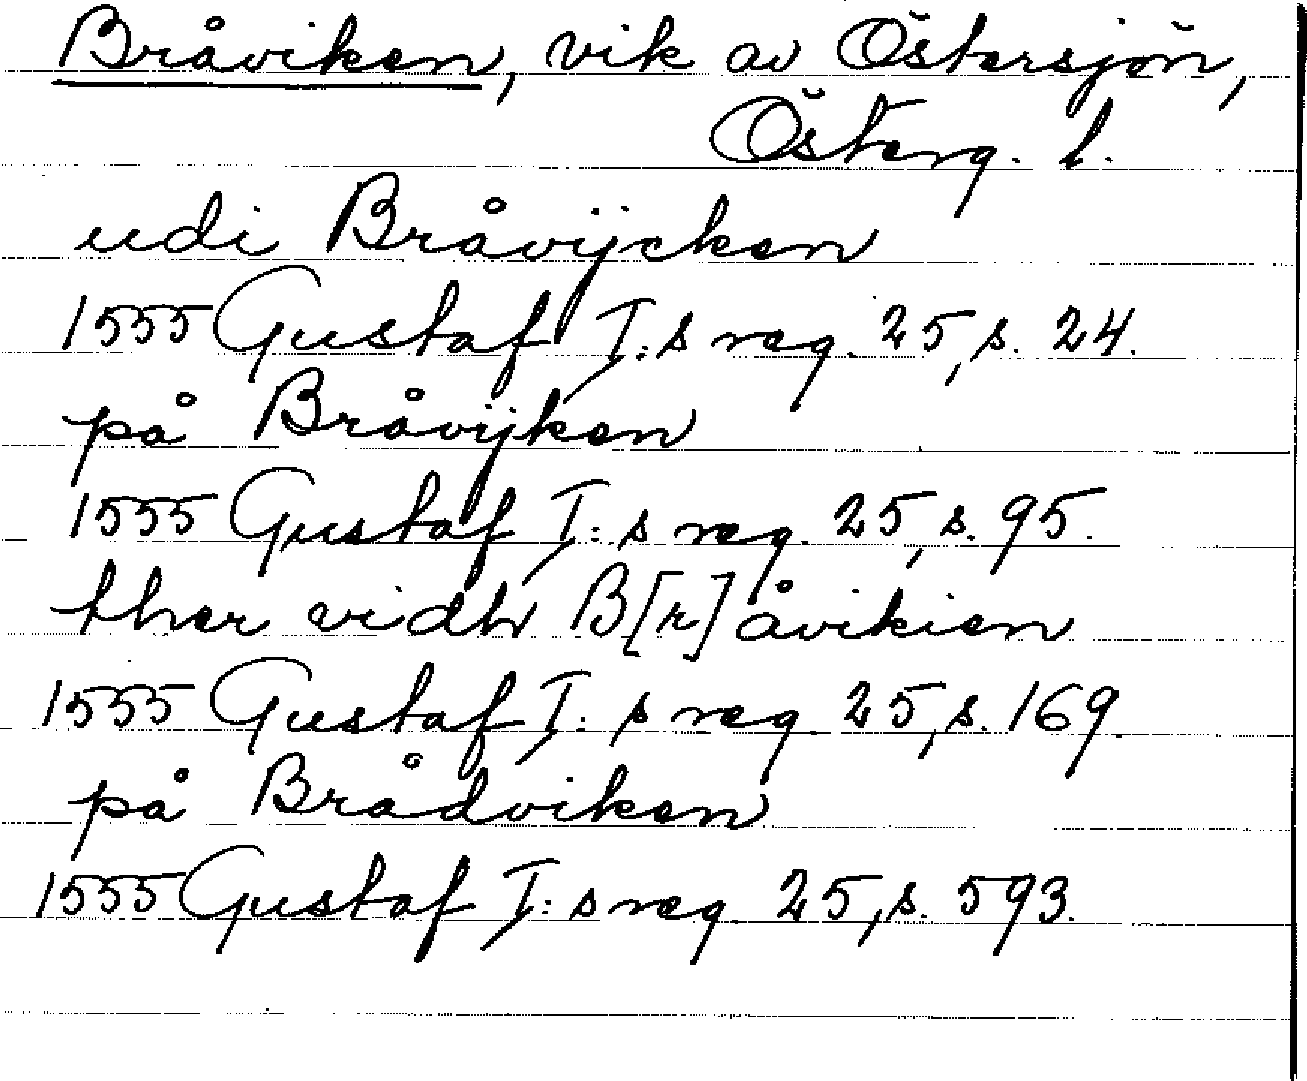 Bråviken, vik av Östersjön,
Österg. l.
udi Bråvijcken
1555 Gustaf I:s reg. 25, s. 24.
på Bråvijken
1555 Gustaf I:s reg. 25, s. 95.
ther vidh B[r]åvikien
1555 Gustaf I:s reg. 25, s. 169.
på Brådviken
1555 Gustaf I:s reg. 25, s. 593.